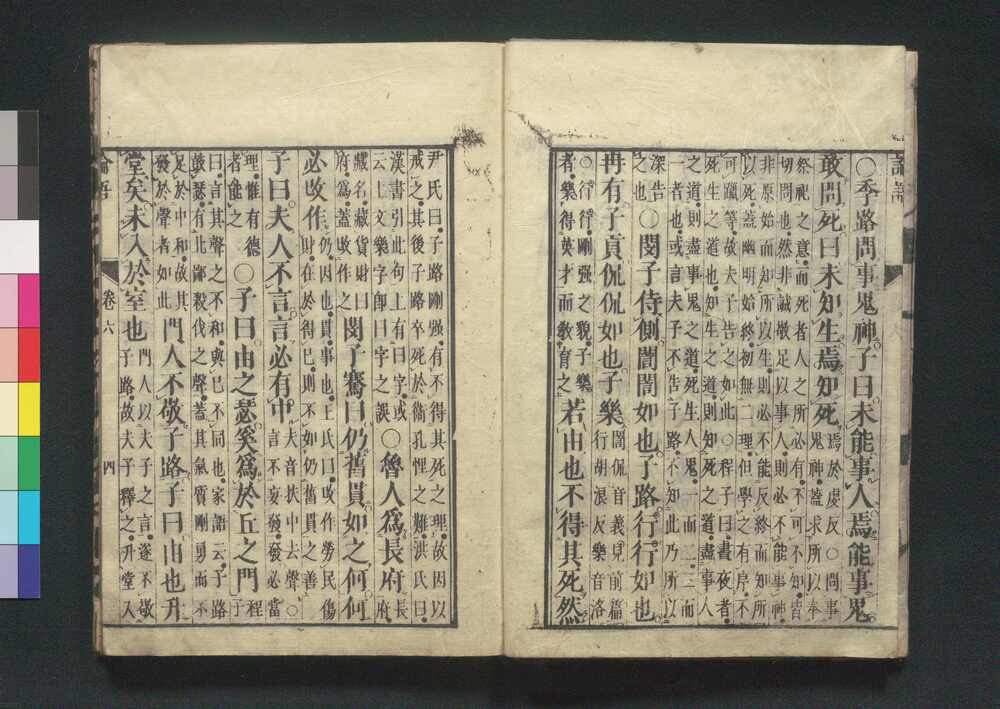 論語
○季路問事鬼神子曰未能事人焉能事鬼
敢問死曰未知生焉知死
焉於虔反○問事
鬼神蓋求所以奉
祭祀之意而死者人之所必有不可不知皆
切問也然非誠敬足以事人則必不能事神
非原始而知所以生則必不能反終而知所
以死蓋幽明始終初無二理但學之有序不
可躐等故夫子告之如此○程子曰晝夜者
死生之道也知生之道則知死之道盡事人
之道則盡事鬼之道死生人鬼一而二二而
一者也或言夫子不告子路不知此乃所以
深告
之也
○閔子侍側誾誾如也子路行行如也
冉有子貢侃侃如也子樂
誾侃音義見前篇
行胡浪反樂音洛
○行行剛强之貌子樂
者樂得英才而敎育之
若由也不得其死然
尹氏曰子路剛强有不得其死之理故因以
戒之其後子路卒死於衞孔悝之難洪氏曰
漢書引此句上有曰字或
云上文樂字卽曰字之誤
○魯人爲長府
長
府
藏名藏貨財曰
府爲蓋改作之
閔子騫曰仍舊貫如之何何
必改作
仍因也貫事也王氏曰改作勞民傷
財在於得已則不如仍舊貫之善
子曰夫人不言言必有中
夫音扶中去聲○
言不妄發發必當
理惟有德
者能之
○子曰由之瑟奚爲於丘之門
程
子
曰言其聲之不和與己不同也家語云子路
鼓瑟有北鄙殺伐之聲蓋其氣質剛勇而不
足於中和故其
發於聲者如此
門人不敬子路子曰由也升
堂矣未入於室也
門人以夫子之言遂不敬
子路故夫子釋之升堂入
論語
卷六
四